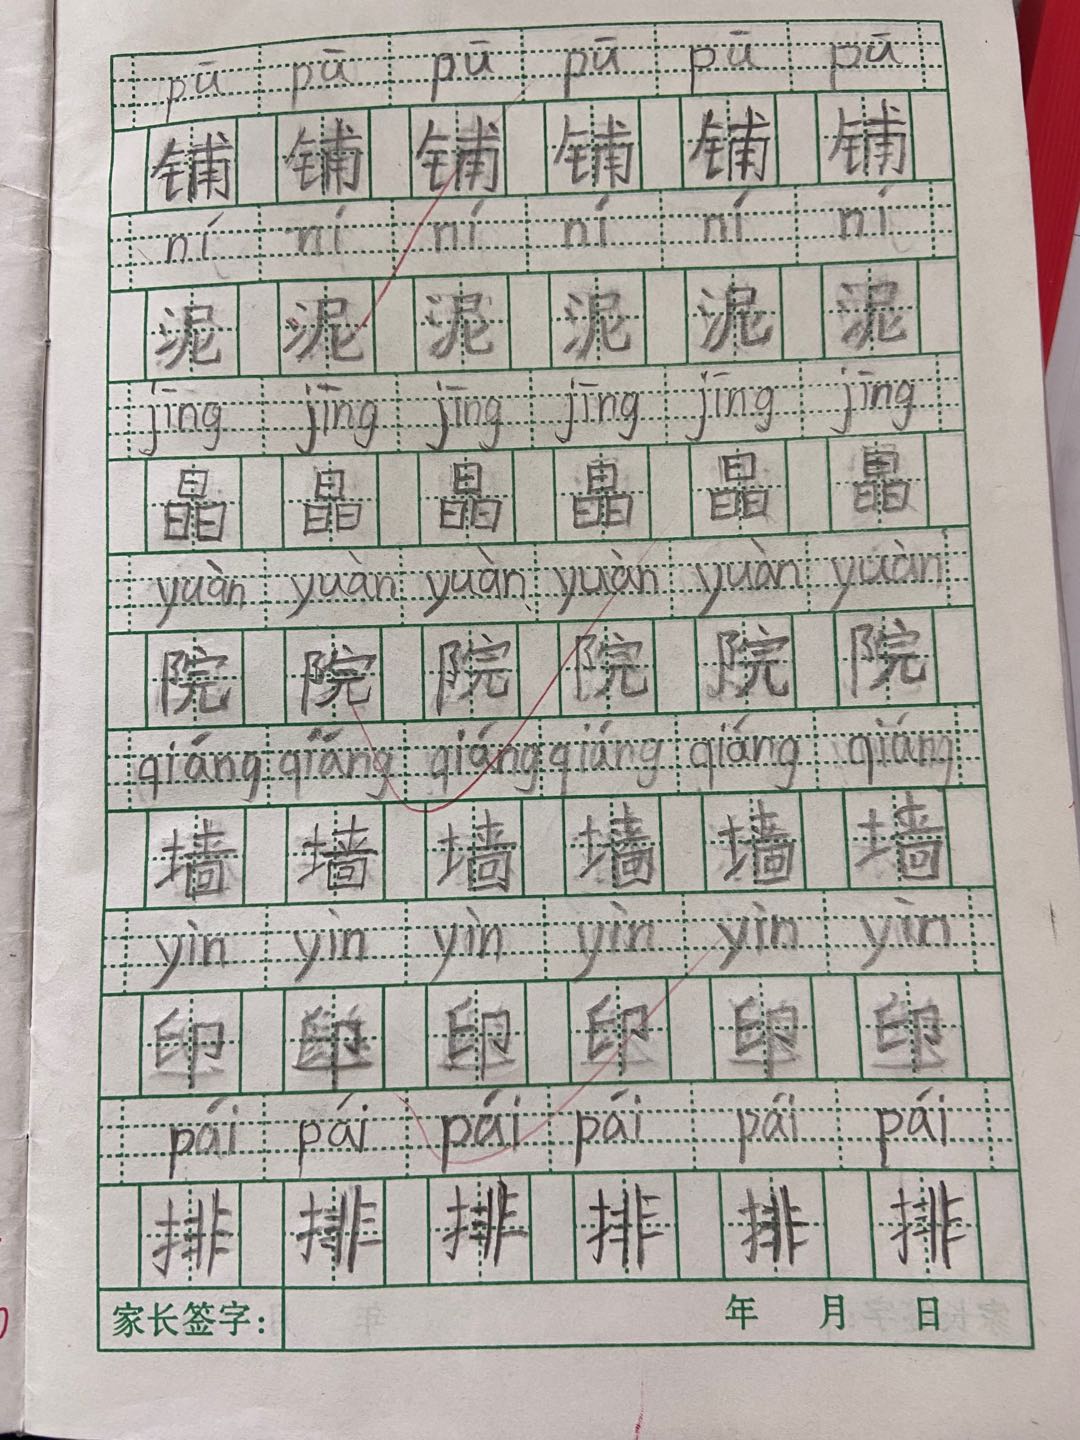 pū pū pū pū pū pū
铺 铺 铺 铺 铺 铺
ní ní ní ní ní ní
泥 泥 泥 泥 泥 泥
jīng jīng jīng jīng jīng jīng
晶 晶 晶 晶 晶 晶
yuàn yuàn yuàn yuàn yuàn yuàn
院 院 院 院 院 院
qiáng qiáng qiáng qiáng qiáng qiáng
墙 墙 墙 墙 墙 墙
yìn yìn yìn yìn yìn yìn
印 印 印 印 印 印
pái pái pái pái pái pái
排 排 排 排 排 排
家长签字: 年 月 日